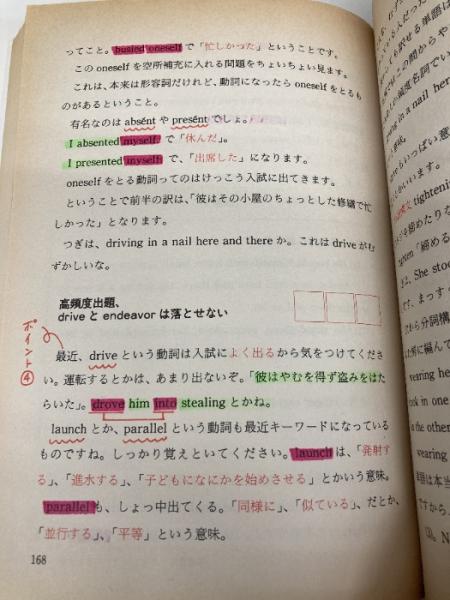 ってこと。busied oneself で「忙しかった」ということです。
このoneselfを空所補充に入れる問題をちょいちょい見ます。
これは、本来は形容詞だけれど、動詞になったらoneselfをとるも
のがあるということ。
有名なのは absént や presént でしょ。
I absented myself で「休んだ」。
I presented myself で、「出席した」になります。
oneselfをとる動詞ってのはけっこう入試に出てきます。
ということで前半の訳は、「彼はその小屋のちょっとした修繕で忙
しかった」となります。
つぎは、driving in a nail here and there か。これは drive がむ
ずかしいな。
高頻度出題、
drive と endeavor は落とせない
ポイント④
最近、drive という動詞は入試によく出るから気をつけてくださ
い。運転するとかは、あまり出ないぞ。「彼はやむを得ず盗みをはた
らいた」。drove him into stealing とかね。
launch とか、parallel という動詞も最近キーワードになっている
ものですね。しっかり覚えといてください。launch は、「発射す
る」、「進水する」、「子どもになにかを始めさせる」とかいう意味。
parallel も、しょっ中出てくる。「同様に」、「似ている」、だとか、
「並行する」、「平等」という意味。
168
in a nail here
tightenin
2. She stoo
wearing he
ook in one
a the other
wearing